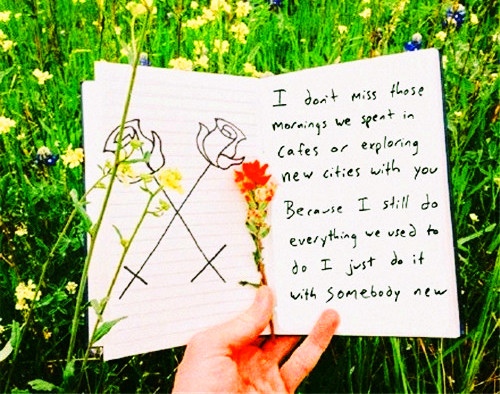 I don't miss those
mornings we spent in
cafes or exploring
new cities with you
Because I still do
everything we used to
do I just do it
with somebody new